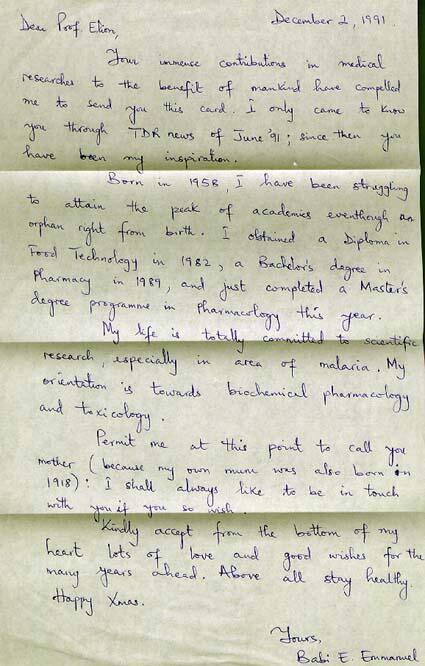 December 2, 1991.
Dear Prof. Elion,
Your immense contributions in medical
researches to the benefit of mankind have compelled
me to send you this card. I only came to know
you through TDR news of June '91; since then you
have been my inspiration.
Born in 1958, I have been struggling
to attain the peak of academics eventhough an
orphan right from birth. I obtained a Diploma in
Food Technology in 1982, a Bachelor's degree in
Pharmacy in 1989, and just completed a Master's
degree programme in Pharmacology this year.
My life is totally committed to scientific
research, especially in area of malaria. My
orientation is towards biochemical pharmacology
and toxicology.
Permit me at this point to call you
mother (because my own mum was also born in
1918): I shall always like to be in touch
with you if you so wish.
Kindly accept from the bottom of my
heart lots of love and good wishes for the
many years ahead. Above all stay healthy.
Happy Xmas.
Yours,
Babi E. Emmanuel